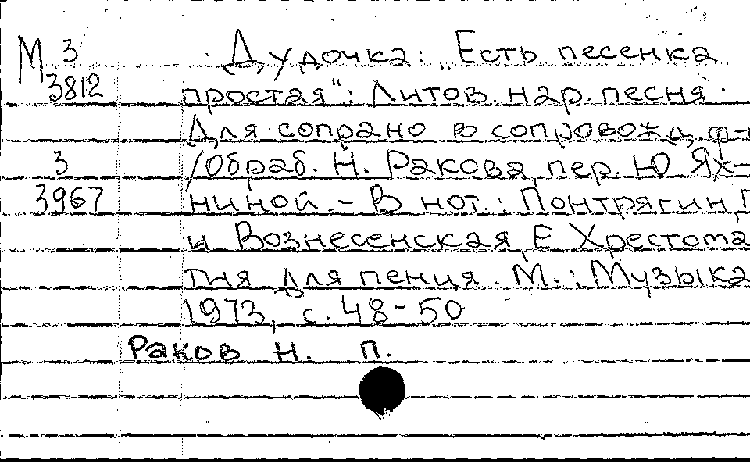 М 3
3812
3
3967
Дудочка: „Есть песенка
простая": Литов. нар. песня.
Для сопрано в сопровожд. ф-
/Обраб. Н. Ракова, пер. Ю Ях-
ниной – В нот.: Понтрягин,
и Вознесенская, Е Хрестома
тия для пения. М.: Музыка
1973, с. 48-50
Раков Н. п.